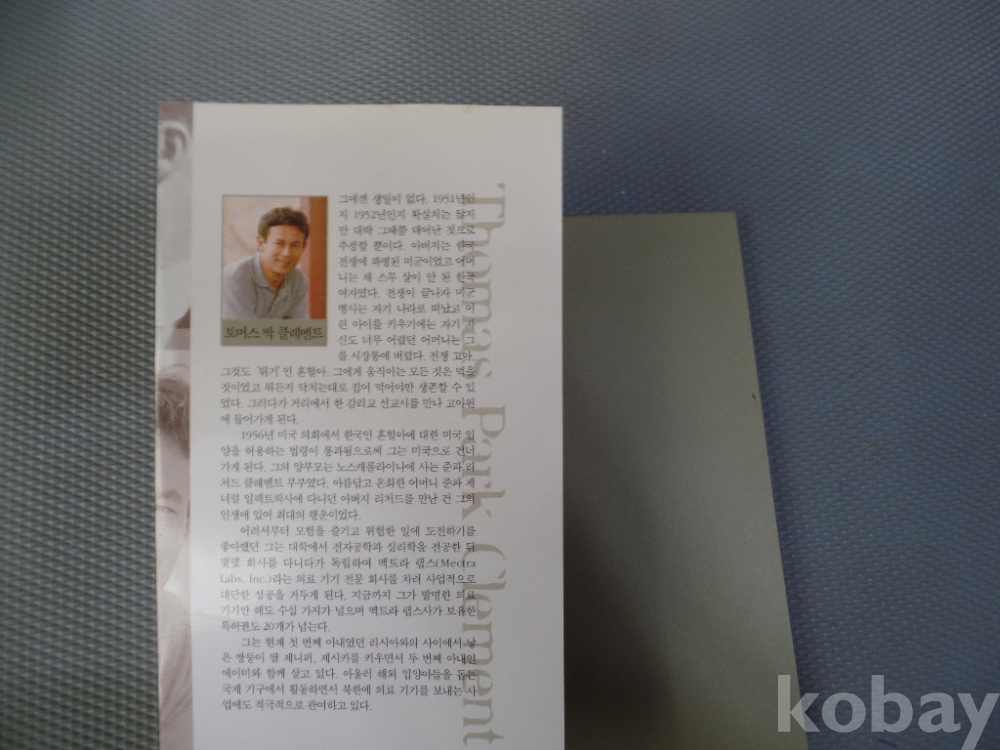 그에겐 생일이 없다. 1951년인
지 1952년인지 확실치는 않지
만 대략 그때쯤 태어난 것으로
추정할 뿐이다. 아버지는 한국
전쟁에 파병된 미군이었고 어머
니는 채 스무 살이 안 된 한국
여자였다. 전쟁이 끝나자 미군
병사는 자기 나라로 떠났고 어
린 아이를 키우기에는 자기 자
신도 너무 어렸던 어머니는 그
를 시장통에 버렸다. 전쟁 고아.
토머스 박 클레멘트
그것도 '튀기'인 혼혈아. 그에게 움직이는 모든 것은 먹을
것이었고 뭐든지 닥치는대로 집어 먹어야만 생존할 수 있
었다. 그러다가 거리에서 한 감리교 선교사를 만나 고아원
에 들어가게 된다.
1956년 미국 의회에서 한국인 혼혈아에 대한 미국 입
양을 허용하는 법령이 통과됨으로써 그는 미국으로 건너
가게 된다. 그의 양부모는 노스캐롤라이나에 사는 준과 리
처드 클레멘트 부부였다. 아름답고 온화한 어머니 준과 제
너럴 일렉트릭사에 다니던 아버지 리처드를 만난 건 그의
인생에 있어 최대의 행운이었다.
어려서부터 모험을 즐기고 위험한 일에 도전하기를
좋아했던 그는 대학에서 전자공학과 심리학을 전공한 뒤
몇몇 회사를 다니다가 독립하여 멕트라 랩스(Mectra
Labs, Inc.)라는 의료 기기 전문 회사를 차려 사업적으로
대단한 성공을 거두게 된다. 지금까지 그가 발명한 의료
기기만 해도 수십 가지가 넘으며 멕트라 랩스사가 보유한
특허권도 20개가 넘는다.
그는 현재 첫 번째 아내였던 리시아와의 사이에서 낳
은 쌍둥이 딸 제니퍼, 제시카를 키우면서 두 번째 아내인
에이미와 함께 살고 있다. 아울러 해외 입양아들을 돕는
국제 기구에서 활동하면서 북한에 의료 기기를 보내는 사
업에도 적극적으로 관여하고 있다.
Thomas Park Clement
kobay